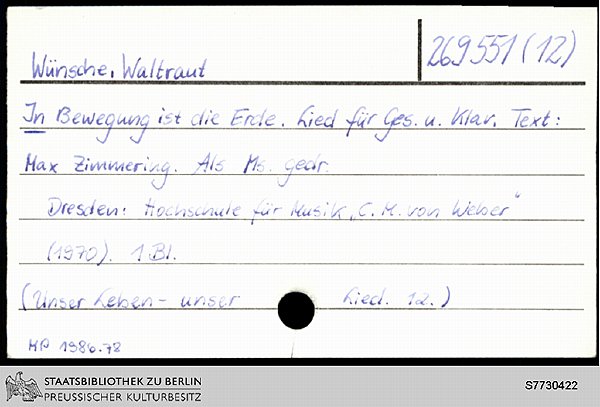 Wünsche, Waltraut
269551 (12)
In Bewegung ist die Erde. Lied für Ges. u. Klav. Text:
Max Zimmering. Als Ms. gedr.
Dresden: Hochschule für Musik „C. M. von Weber"
(1970). 1 Bl.
(Unser Leben - unser Lied. 12.)
MP 1986.78
STAATSBIBLIOTHEK ZU BERLIN
PREUSSISCHER KULTURBESITZ
S7730422